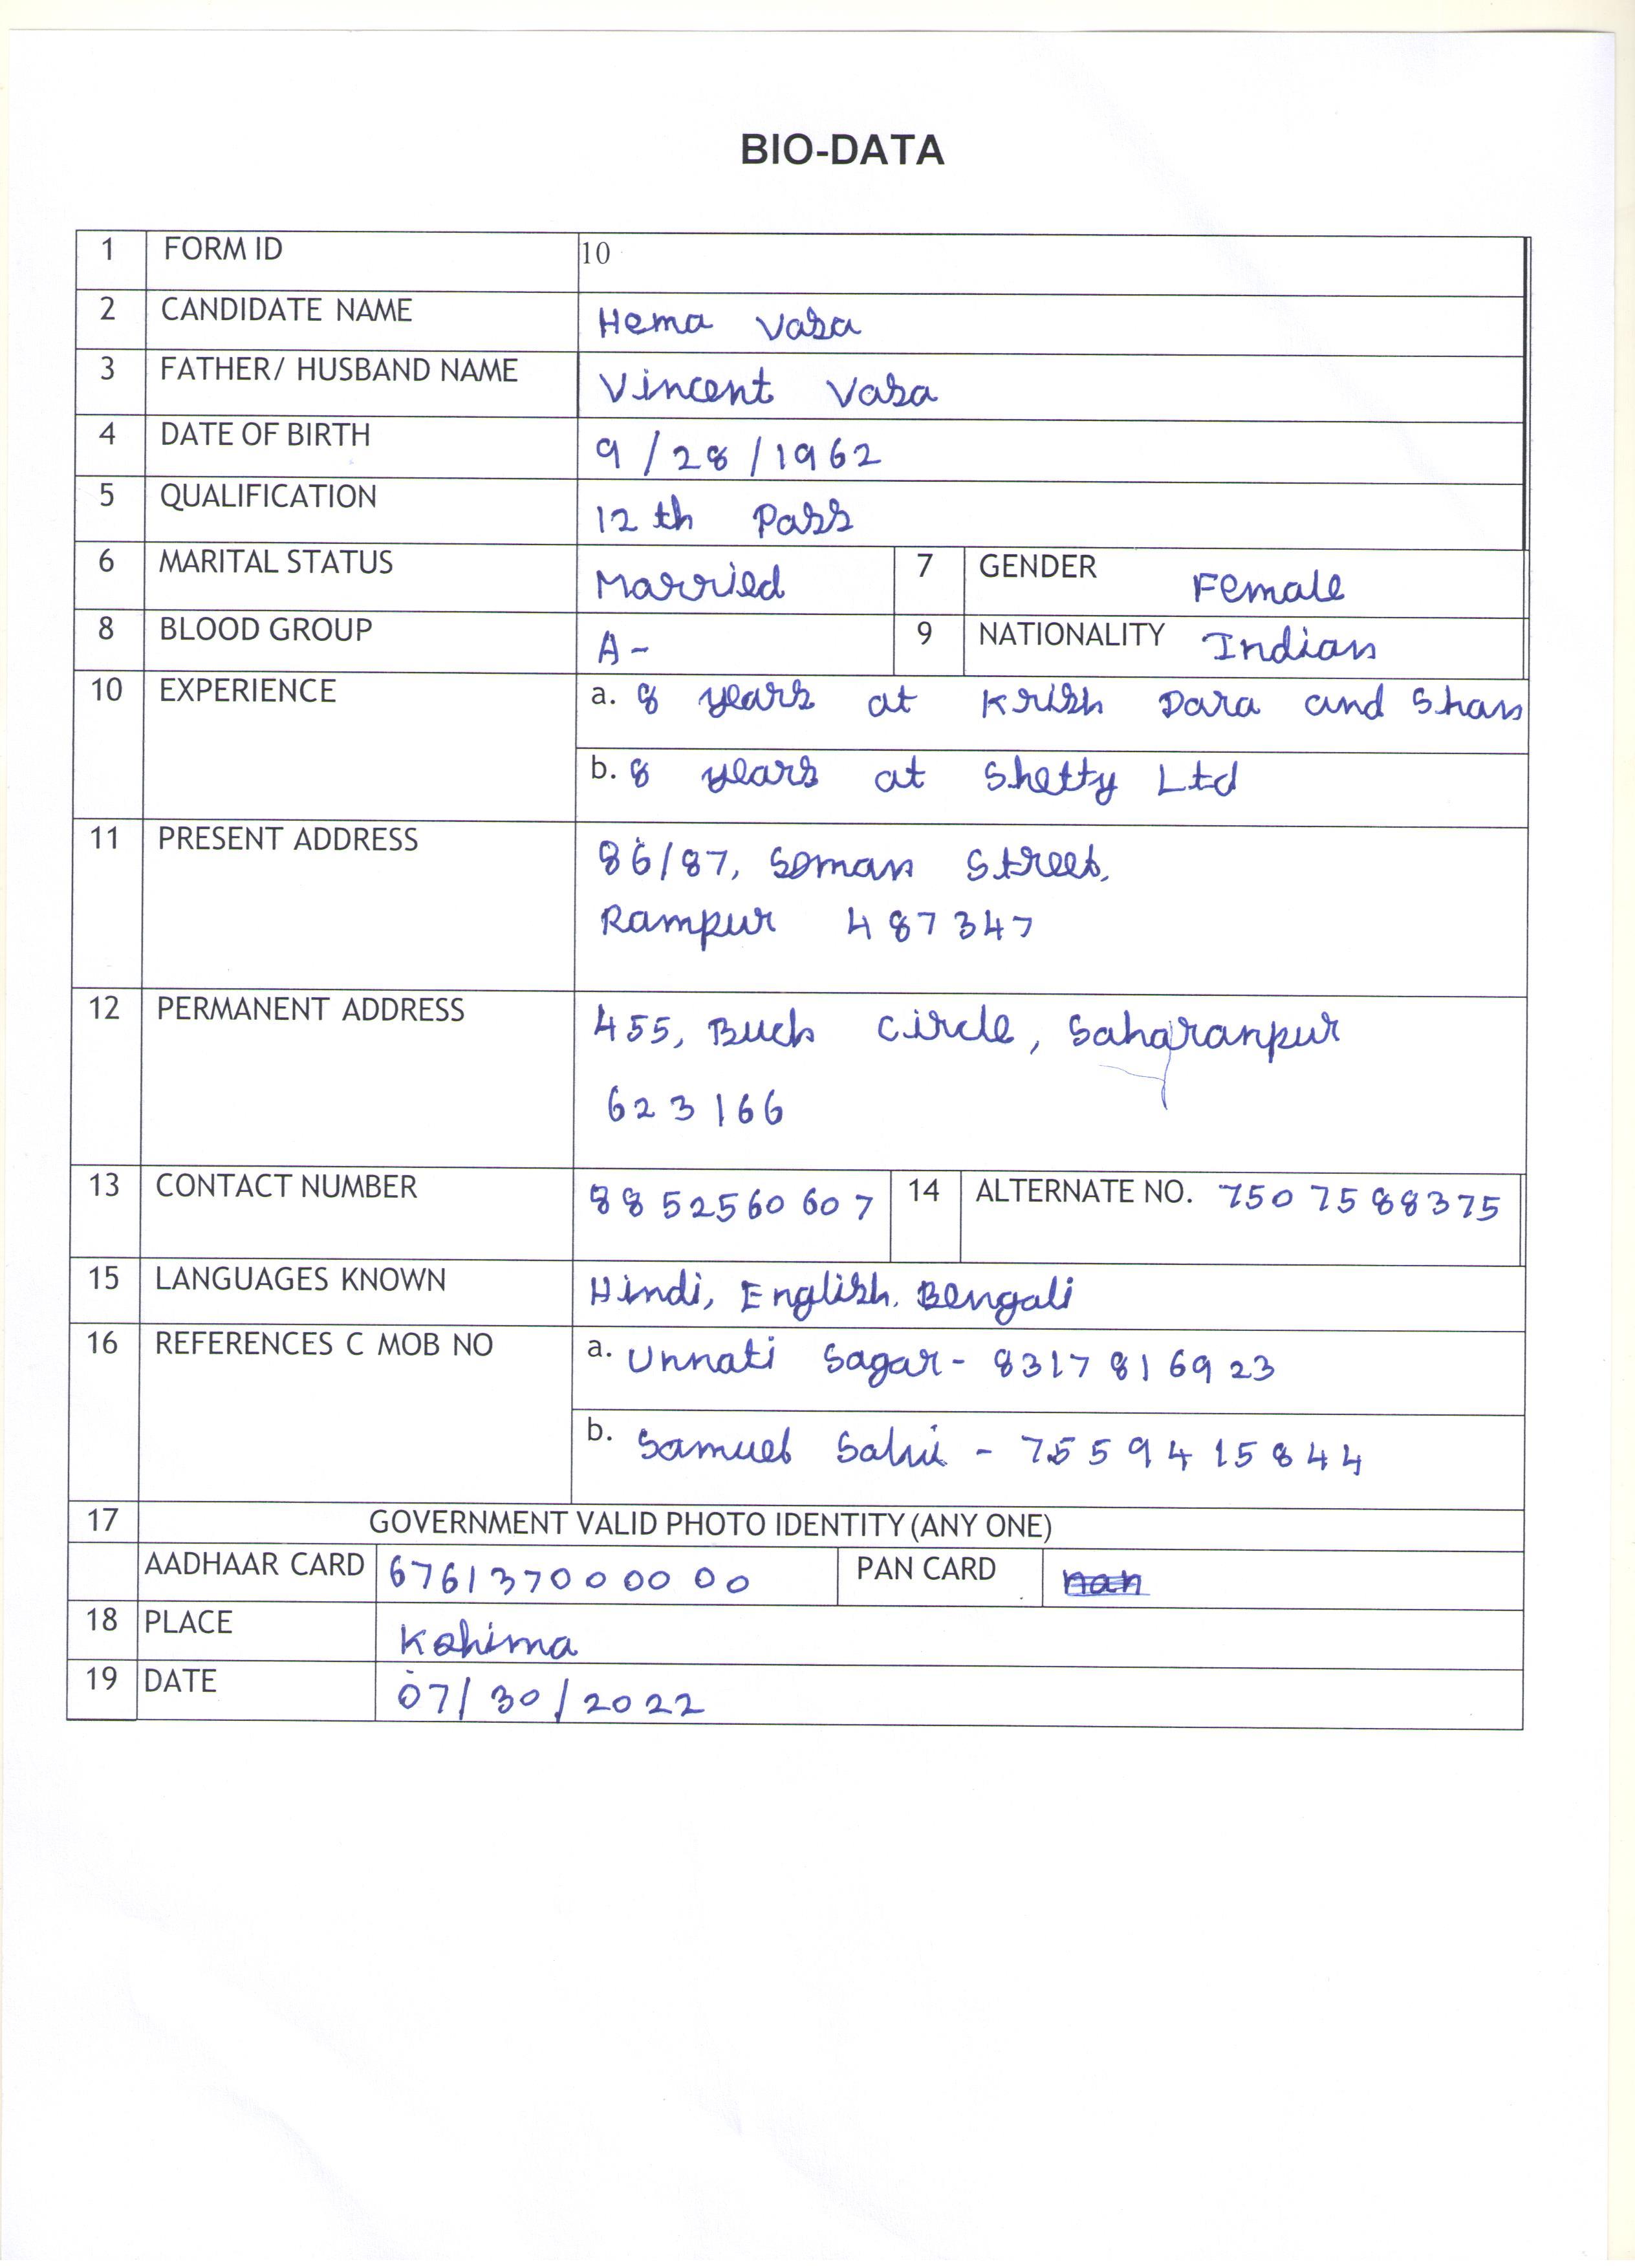 BIO-DATA
1 FORM ID 10
2 CANDIDATE NAME Hema Vasa
3 FATHER/ HUSBAND NAME Vincent Vasa
4 DATE OF BIRTH 9/28/1962
5 QUALIFICATION 12th Pass
6 MARITAL STATUS Married 7 GENDER Female
8 BLOOD GROUP A- 9 NATIONALITY Indian
10 EXPERIENCE a. 8 years at Krish Dara and Shan
b. 8 years at Shetty Ltd
11 PRESENT ADDRESS 86/87, Soman Street,
Rampur 487347
12 PERMANENT ADDRESS 455, Buch Circle, Saharanpur
623166
13 CONTACT NUMBER 8852560607 14 ALTERNATE NO. 7507588375
15 LANGUAGES KNOWN Hindi, English, Bengali
16 REFERENCES C MOB NO a. Unnati Sagar - 8317816923
b. Samuel - 7559415844
17 GOVERNMENT VALID PHOTO IDENTITY (ANY ONE)
AADHAAR CARD 676137000000 PAN CARD nan
18 PLACE Kohima
19 DATE 07/30/2022